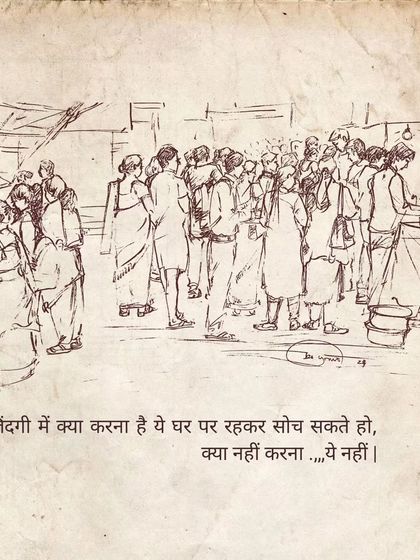 में क्या करना है ये घर पर रहकर सोच सकते हो,
क्या नहीं करना .,,,ये नहीं |